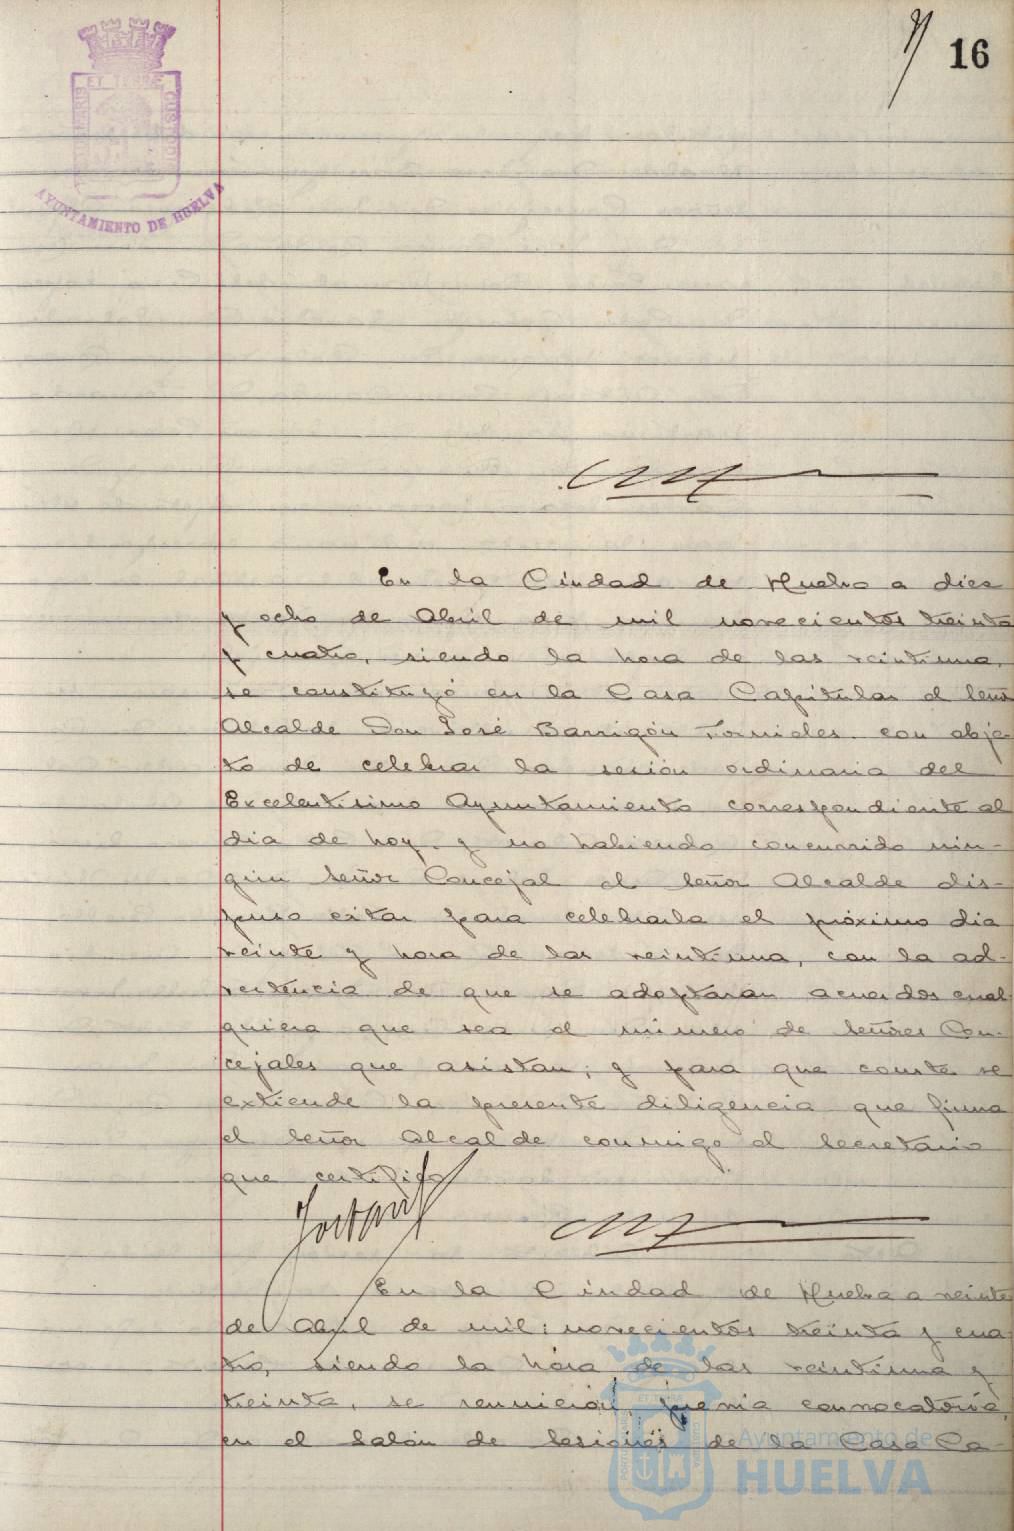 16
ET TERRÆ
AYUNTAMIENTO DE HUELVA
En la Ciudad de Huelva a diez
y ocho de Abril de mil novecientos treinta
y cuatro, siendo la hora de las veintiuna,
se constituyó en la Casa Capitular el Señor
Alcalde Don José Barrigón Fornieles con obje-
to de celebrar la sesión ordinaria del
Excelentísimo Ayuntamiento correspondiente al
día de hoy, y no habiendo concurrido nin-
gún Señor Concejal el Señor Alcalde dis-
puso citar para celebrarla el próximo día
veinte y hora de las veintiuna, con la ad-
vertencia de que se adoptarán acuerdos cual
quiera que sea el número de Señores Con-
cejales que asistan; y para que conste se
extiende la presente diligencia que firma
el Señor Alcalde conmigo el Secretario
que certifico
En la Ciudad de Huelva a veinte
de Abril de mil novecientos treinta y cua
tro, siendo la hora de las veintiuna y
treinta, se reunieron, previa convocatoria,
en el Salón de Sesiones de la Casa Ca-
Ayuntamiento de
HUELVA